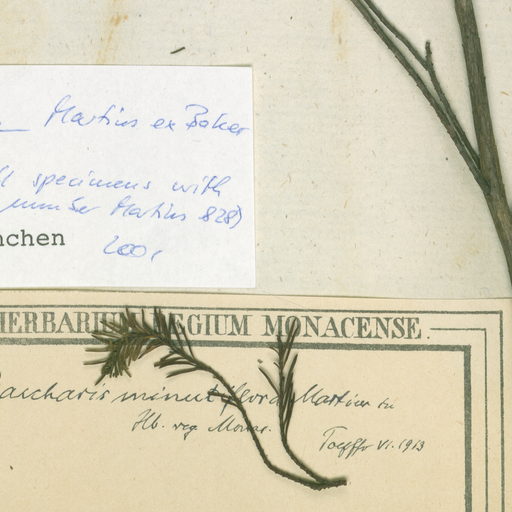 Martius ex Baker
specimens with
Martius 828)
nchen 2001
HERBARIUM REGIUM MONACENSE.
Baccharis minutiflora Martius in
Hb. reg. Monac.
VI. 1913